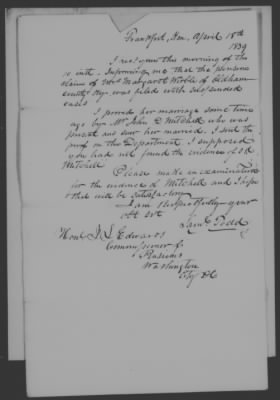 Frankfort, Ken, April 18th
1839
I recd yours this morning of the
10 inst. Informing me that the pension
claim of Mrs Margaret Noble of Oldham
county Ky. was filed with suspended
cases
I proved her marriage some time
ago by Mr John D Mitchell who was
present and saw her married. I sent the
proof on the Department. I supposed
you had not found the evidence of J D
Mitchell
Please make an examination
for the evidence of Mitchell and I hope
that will be satisfactory
I am Respectfully your
obt svt
Todd
Honl J L Edwards
Commissioner of
Pensions
Washington
City DC